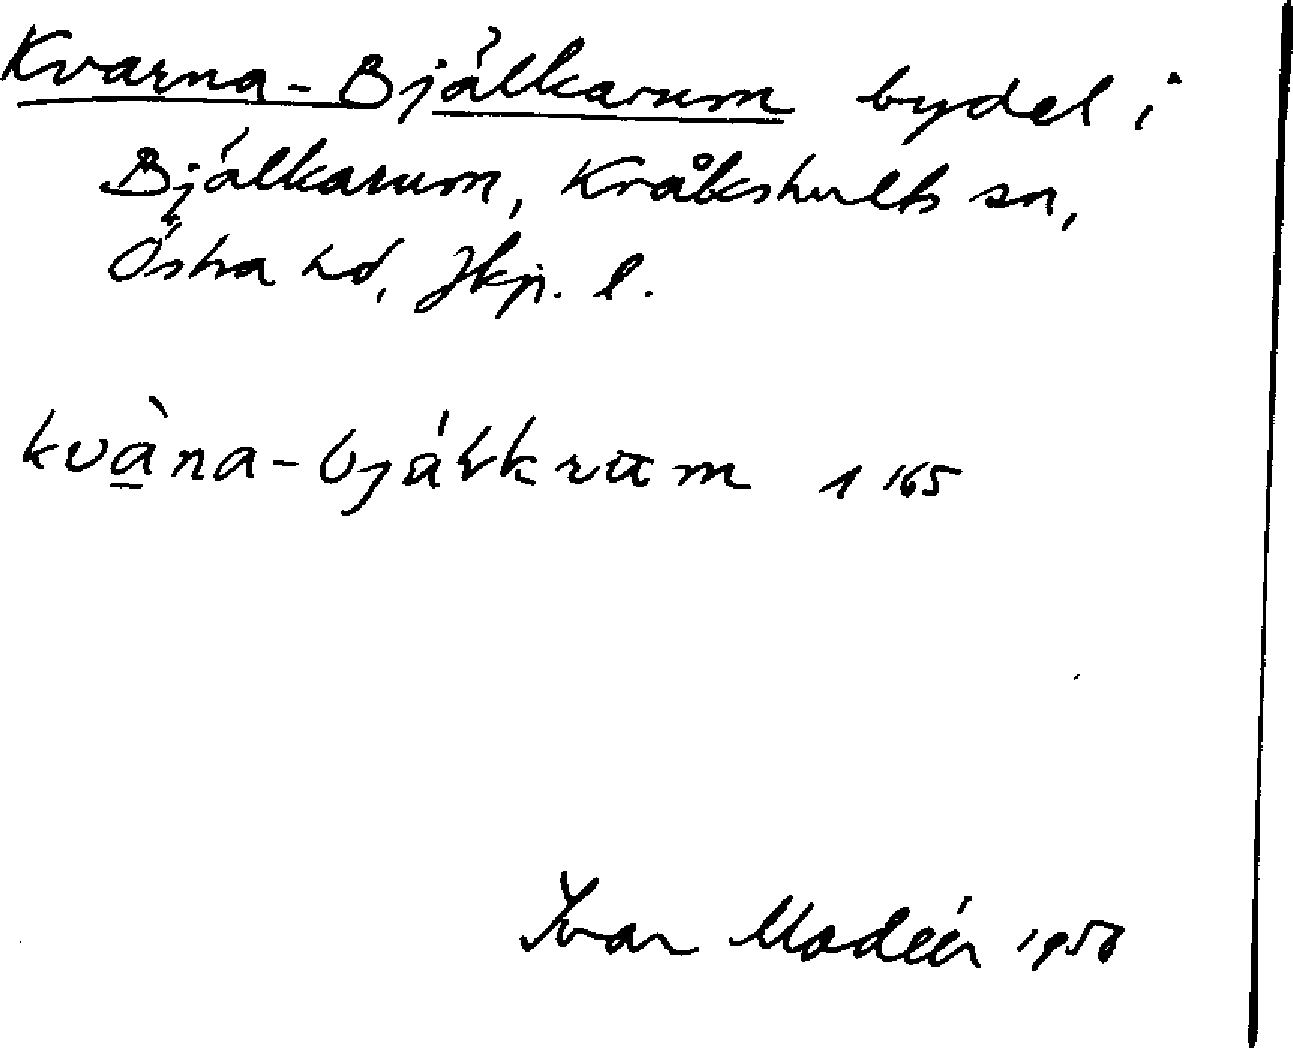 Kvarna-Bjälkarum bydel i
Bjälkarum, Kråkshults sn,
Östra hd, Jkp. l.
kvàna-bjáłkrum 1 '65
Ivar Modéer